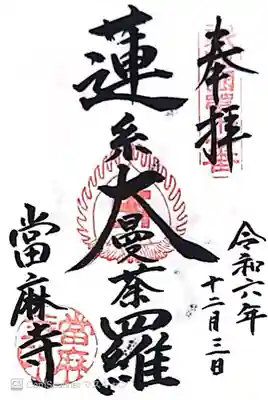 奉拝
蓮糸大曼荼羅
當麻寺
令和六年
十二月三日